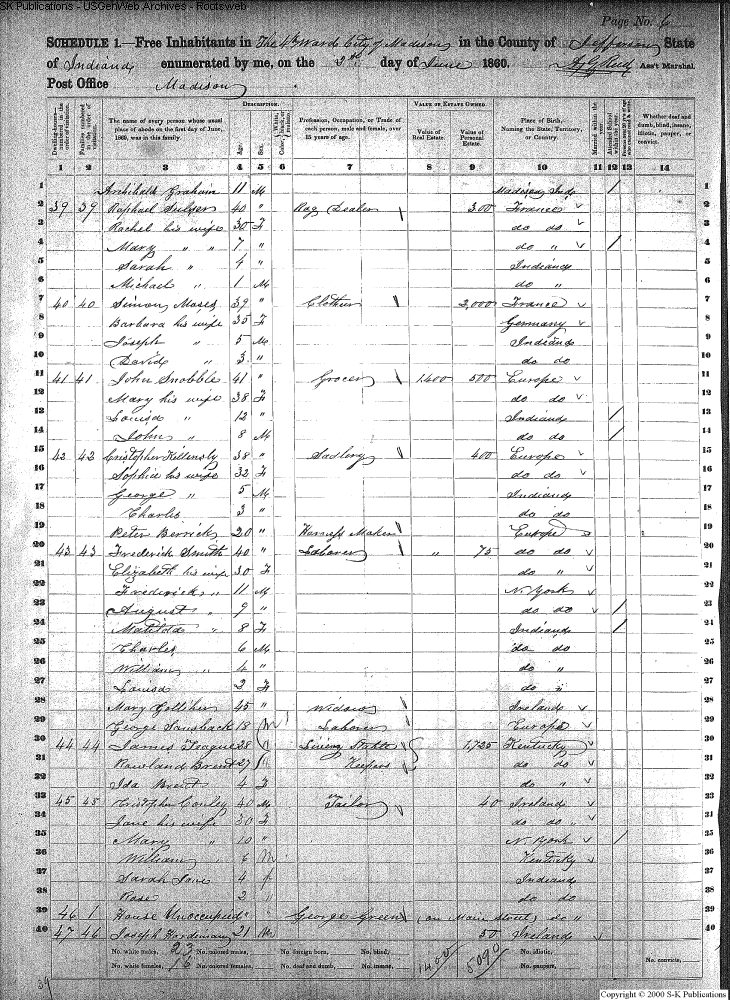 SK Publications - USGenWeb Archives - Rootsweb
Page No. 6
SCHEDULE 1.—Free Inhabitants in The 4th Ward City of Madison in the County of Jefferson State
of Indiana enumerated by me, on the 2nd day of June 1860. Ass't Marshal.
Post Office Madison
Dwelling-houses—numbered in the order of visitation.
Families numbered in the order of visitation.
The name of every person whose usual place of abode on the first day of June, 1860, was in this family.
DESCRIPTION.
Age.
Sex.
Color, White, black, or mulatto.
Profession, Occupation, or Trade of each person, male and female, over 15 years of age.
VALUE OF ESTATE OWNED.
Value of Real Estate.
Value of Personal Estate.
Place of Birth, Naming the State, Territory, or Country.
Married within the year.
Attended School within the year.
Whether deaf and dumb, blind, insane, idiotic, pauper, or convict.
1 2 3 4 5 6 7 8 9 10 11 12 13 14
1 Archibald Graham 11 M Madison Ind / 1
2 39 39 Raphael Sulzer 40 " Rag Dealer 300 France 2
3 Rachel his wife 30 F do do 3
4 Mary " " 7 " do " / 4
5 Sarah " 4 " Indiana 5
6 Michael " 1 M do " 6
7 40 40 Simon Moses 39 " Clothier 2,000 France 7
8 Barbara his wife 35 F Germany 8
9 Joseph " 5 M Indiana 9
10 David " 3 " do do 10
11 41 41 John Snobble 41 " Grocer 1,400 500 Europe 11
12 Mary his wife 38 F do do 12
13 Louisa " 12 " Indiana / 13
14 John " 8 M do do / 14
15 42 42 Cristopher Killensly 38 " Sadlery 400 Europe 15
16 Sophia his wife 32 F do do 16
17 George " 5 M Indiana 17
18 Charles 3 " do do 18
19 Peter Berrick 20 " Harness Maker Europe 19
20 43 43 Frederick Smith 40 " Laborer " 75 do do 20
21 Elizabeth his wife 30 F do " 21
22 Frederick " 11 M N. York 22
23 August " 9 " do do / 23
24 Matilda " 8 F Indiana / 24
25 Charles 6 M do do 25
26 William " 4 " do " 26
27 Louisa 2 F do " 27
28 Mary Golliher 45 " Widow Ireland 28
29 George Sansback 18 M Laborer Europe 29
30 44 44 James Teague 28 Livery Stable 1,725 Kentucky 30
31 Rowland Brent 27 Keepers do do 31
32 Ida Brent 4 F do " 32
33 45 45 Cristopher Conley 40 M Tailor 40 Ireland 33
34 Jane his wife 30 F do do 34
35 Mary " 10 " N. York / 35
36 William 6 M Kentucky 36
37 Sarah Jane 4 f Indiana 37
38 Rose 2 do do 38
39 46 1 House Unoccupied " George Green (on Main Street) do " 39
40 47 46 Joseph Hardeman 21 M 50 Ireland 40
No. white males, 23 No. colored males, No. foreign born, No. blind, 1400 8090 No. idiotic,
No. white females, 16 No. colored females, No. deaf and dumb, No. insane, No. paupers, No. convicts,
39
Copyright © 2000 S-K Publications